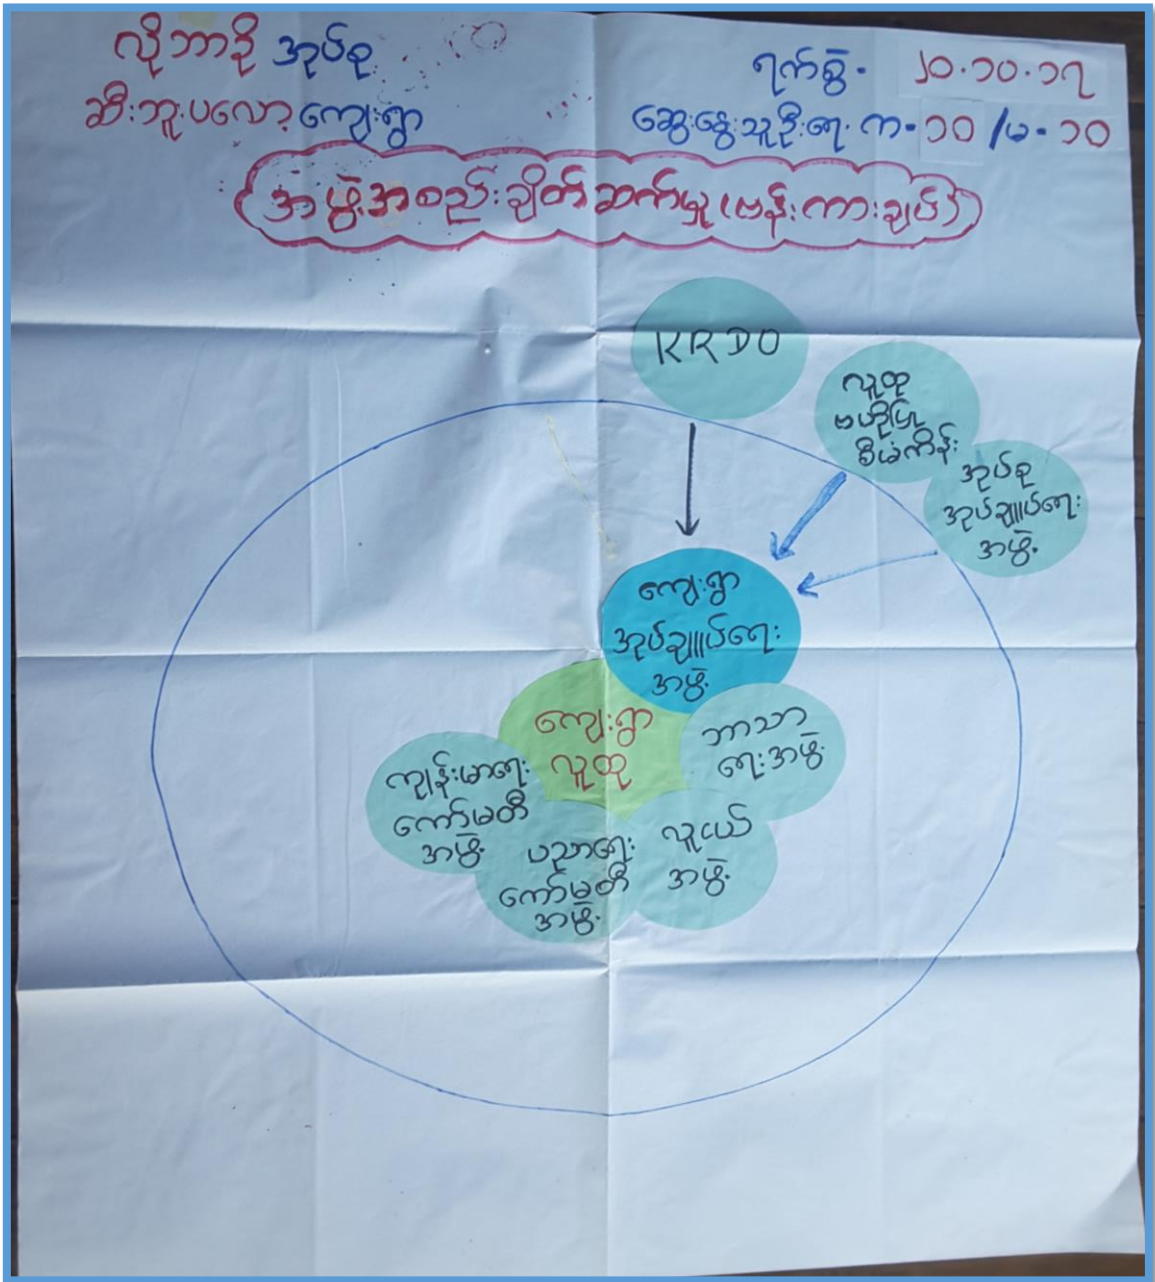 လိုဘာခို အုပ်စု
ဆီးဘူးပလော့ကျေးရွာ
ရက်စွဲ- ၂၀.၁၀.၁၇
ဆွေးနွေးသူဦးရေ-က-၁၀/မ-၁၀
အဖွဲ့အစည်းချိတ်ဆက်မှု(ဗန်းကားချပ်)
KRDO
လူထု
ဗဟိုပြု
စီမံကိန်း
အုပ်စု
အုပ်ချူပ်ရေး
အဖွဲ့
ကျေးရွာ
အုပ်ချူပ်ရေး
အဖွဲ့
ကျေးရွာ
လူထု
ဘာသာ
ရေးအဖွဲ့
ကျန်းမာရေး
ကော်မတီ
အဖွဲ့
ပညာရေး
ကော်မတီ
အဖွဲ့
လူငယ်
အဖွဲ့